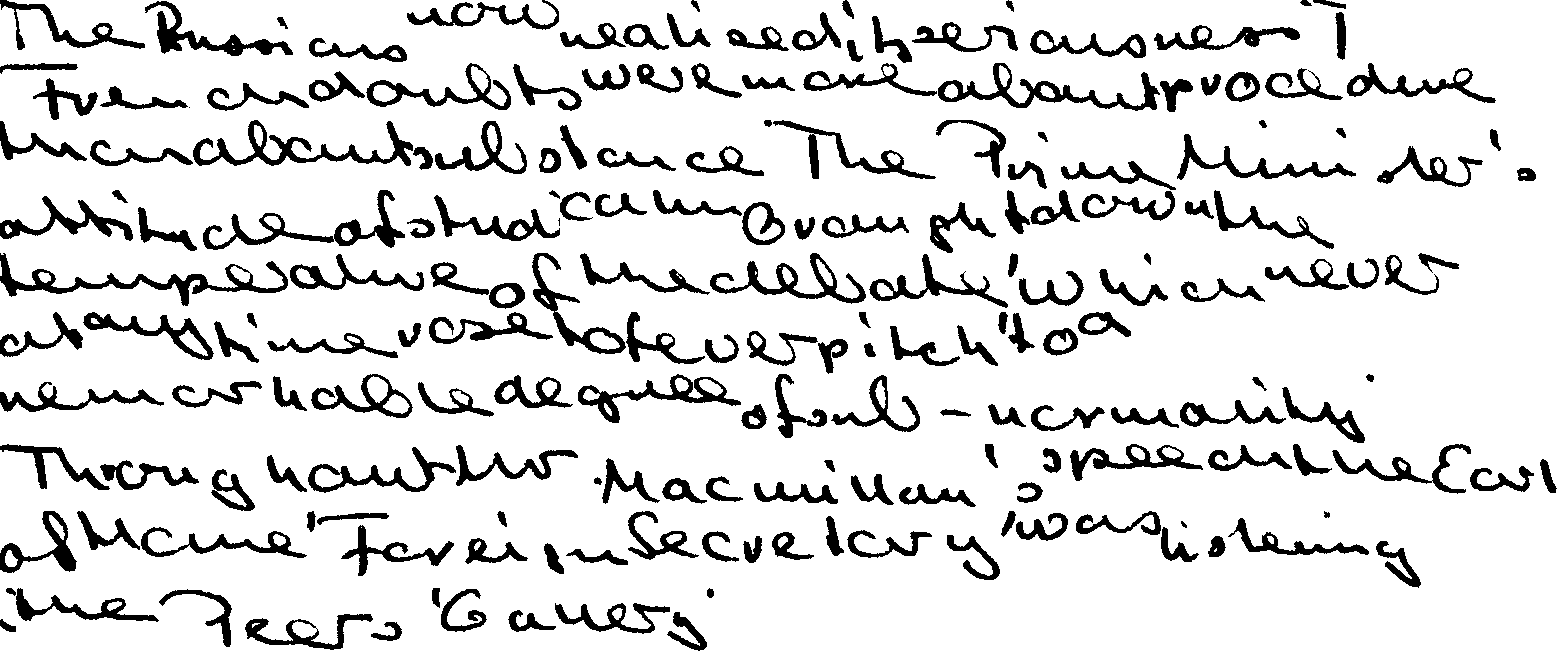 The Russians now realised its seriousness. T
French doubts were more about procedure
than about substance. The Prime Minister's
attitude of studied calm brought down the
temperature of the debate, which never
at any time rose to fever pitch, to a
remarkable degree of sub-normality.
Throughout Mr. Macmillan's speech the Earl
of Home, Foreign Secretary, was listening
in the Peers' Gallery.